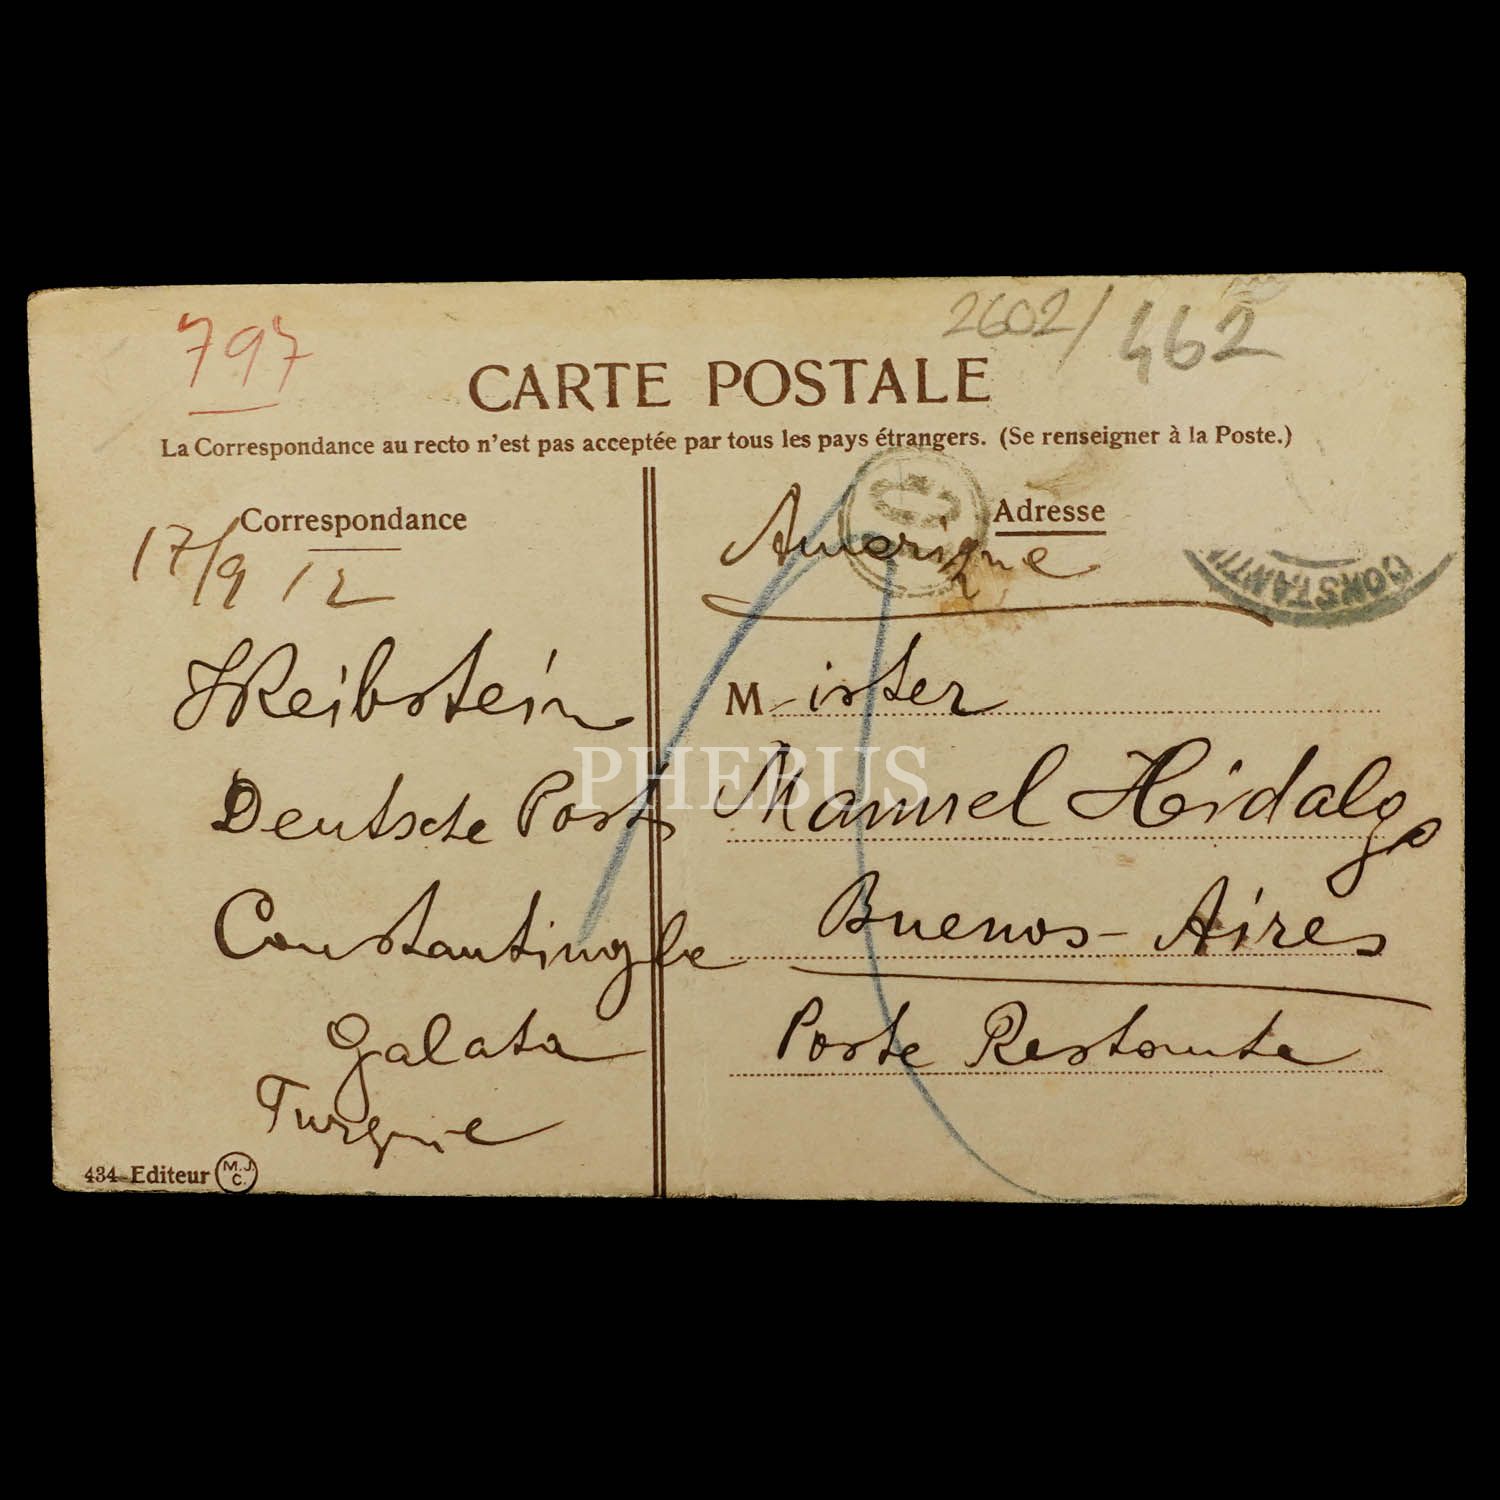 797
2602/
462
CARTE POSTALE
La Correspondance au recto n'est pas acceptée par tous les pays étrangers. (Se renseigner à la Poste.)
Correspondance
17/9 12
Reibstein
Deutsche Post
Constantinople
Galata
Turquie
434 Editeur M.J.C.
Adresse
Amerique
CONSTANTIN
Mister
Manuel Hidalgo
Buenos-Aires
Poste Restante
PHEBUS